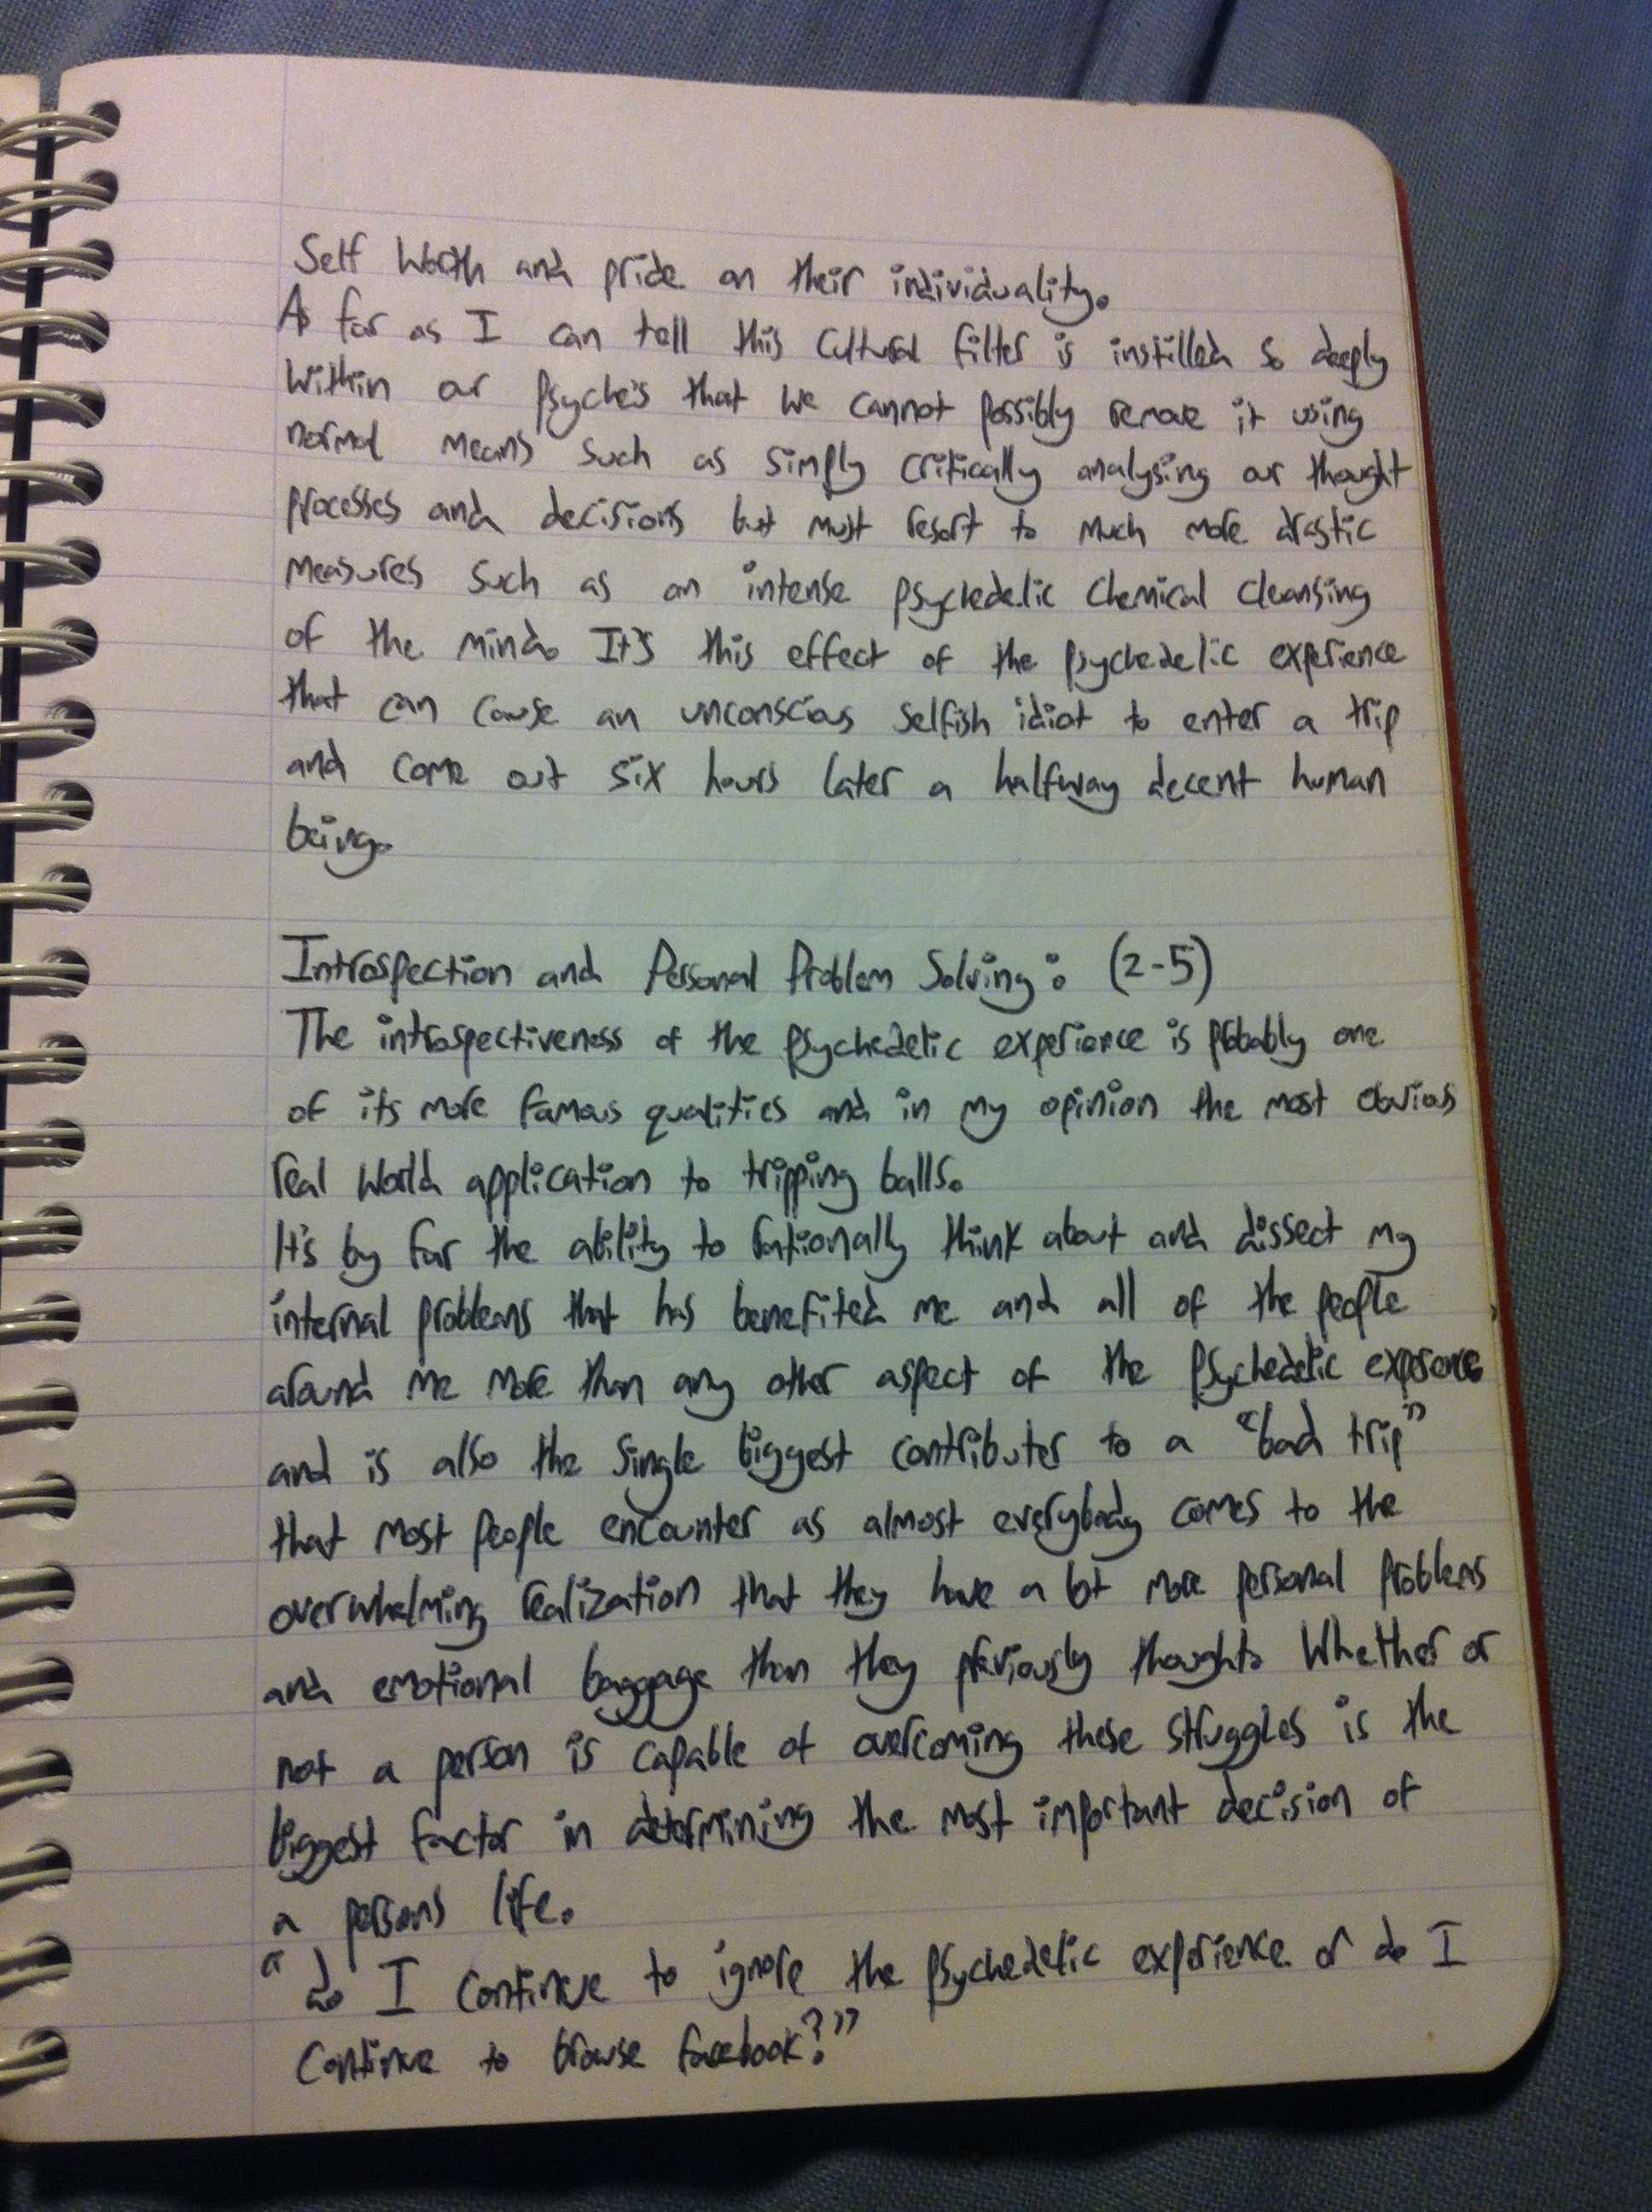 Self Worth and pride on their individuality.
As far as I can tell this Cultural filter is instilled so deeply
Within our Psyche's that we cannot possibly remove it using
normal means such as simply critically analysing our thought
processes and decisions but must resort to much more drastic
measures such as an intense psychedelic chemical cleansing
of the mind. It's this effect of the psychedelic experience
that can cause an unconscious selfish idiot to enter a trip
and come out six hours later a halfway decent human
being.
Introspection and Personal Problem Solving: (2-5)
The introspectiveness of the psychedelic experience is probably one
of its more famous qualities and in my opinion the most obvious
real world application to tripping balls.
It's by far the ability to rationally think about and dissect my
internal problems that has benefited me and all of the people
around me more than any other aspect of the psychedelic experience
and is also the single biggest contributer to a "bad trip"
that most people encounter as almost everybody comes to the
overwhelming realization that they have a lot more personal problems
and emotional baggage than they previously thought. Whether or
not a person is capable of overcoming these struggles is the
biggest factor in determining the most important decision of
a persons life.
"do I continue to ignore the psychedelic experience or do I
Continue to browse facebook?"